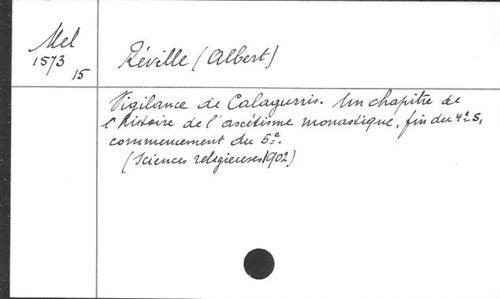 Mel
1573
15
Réville (Albert)
Vigilance de Calagurris. Un chapitre de
l'histoire de l'ascétisme monastique, fin du 4e s,
commencement du 5e.
(Sciences religieuses 1902)